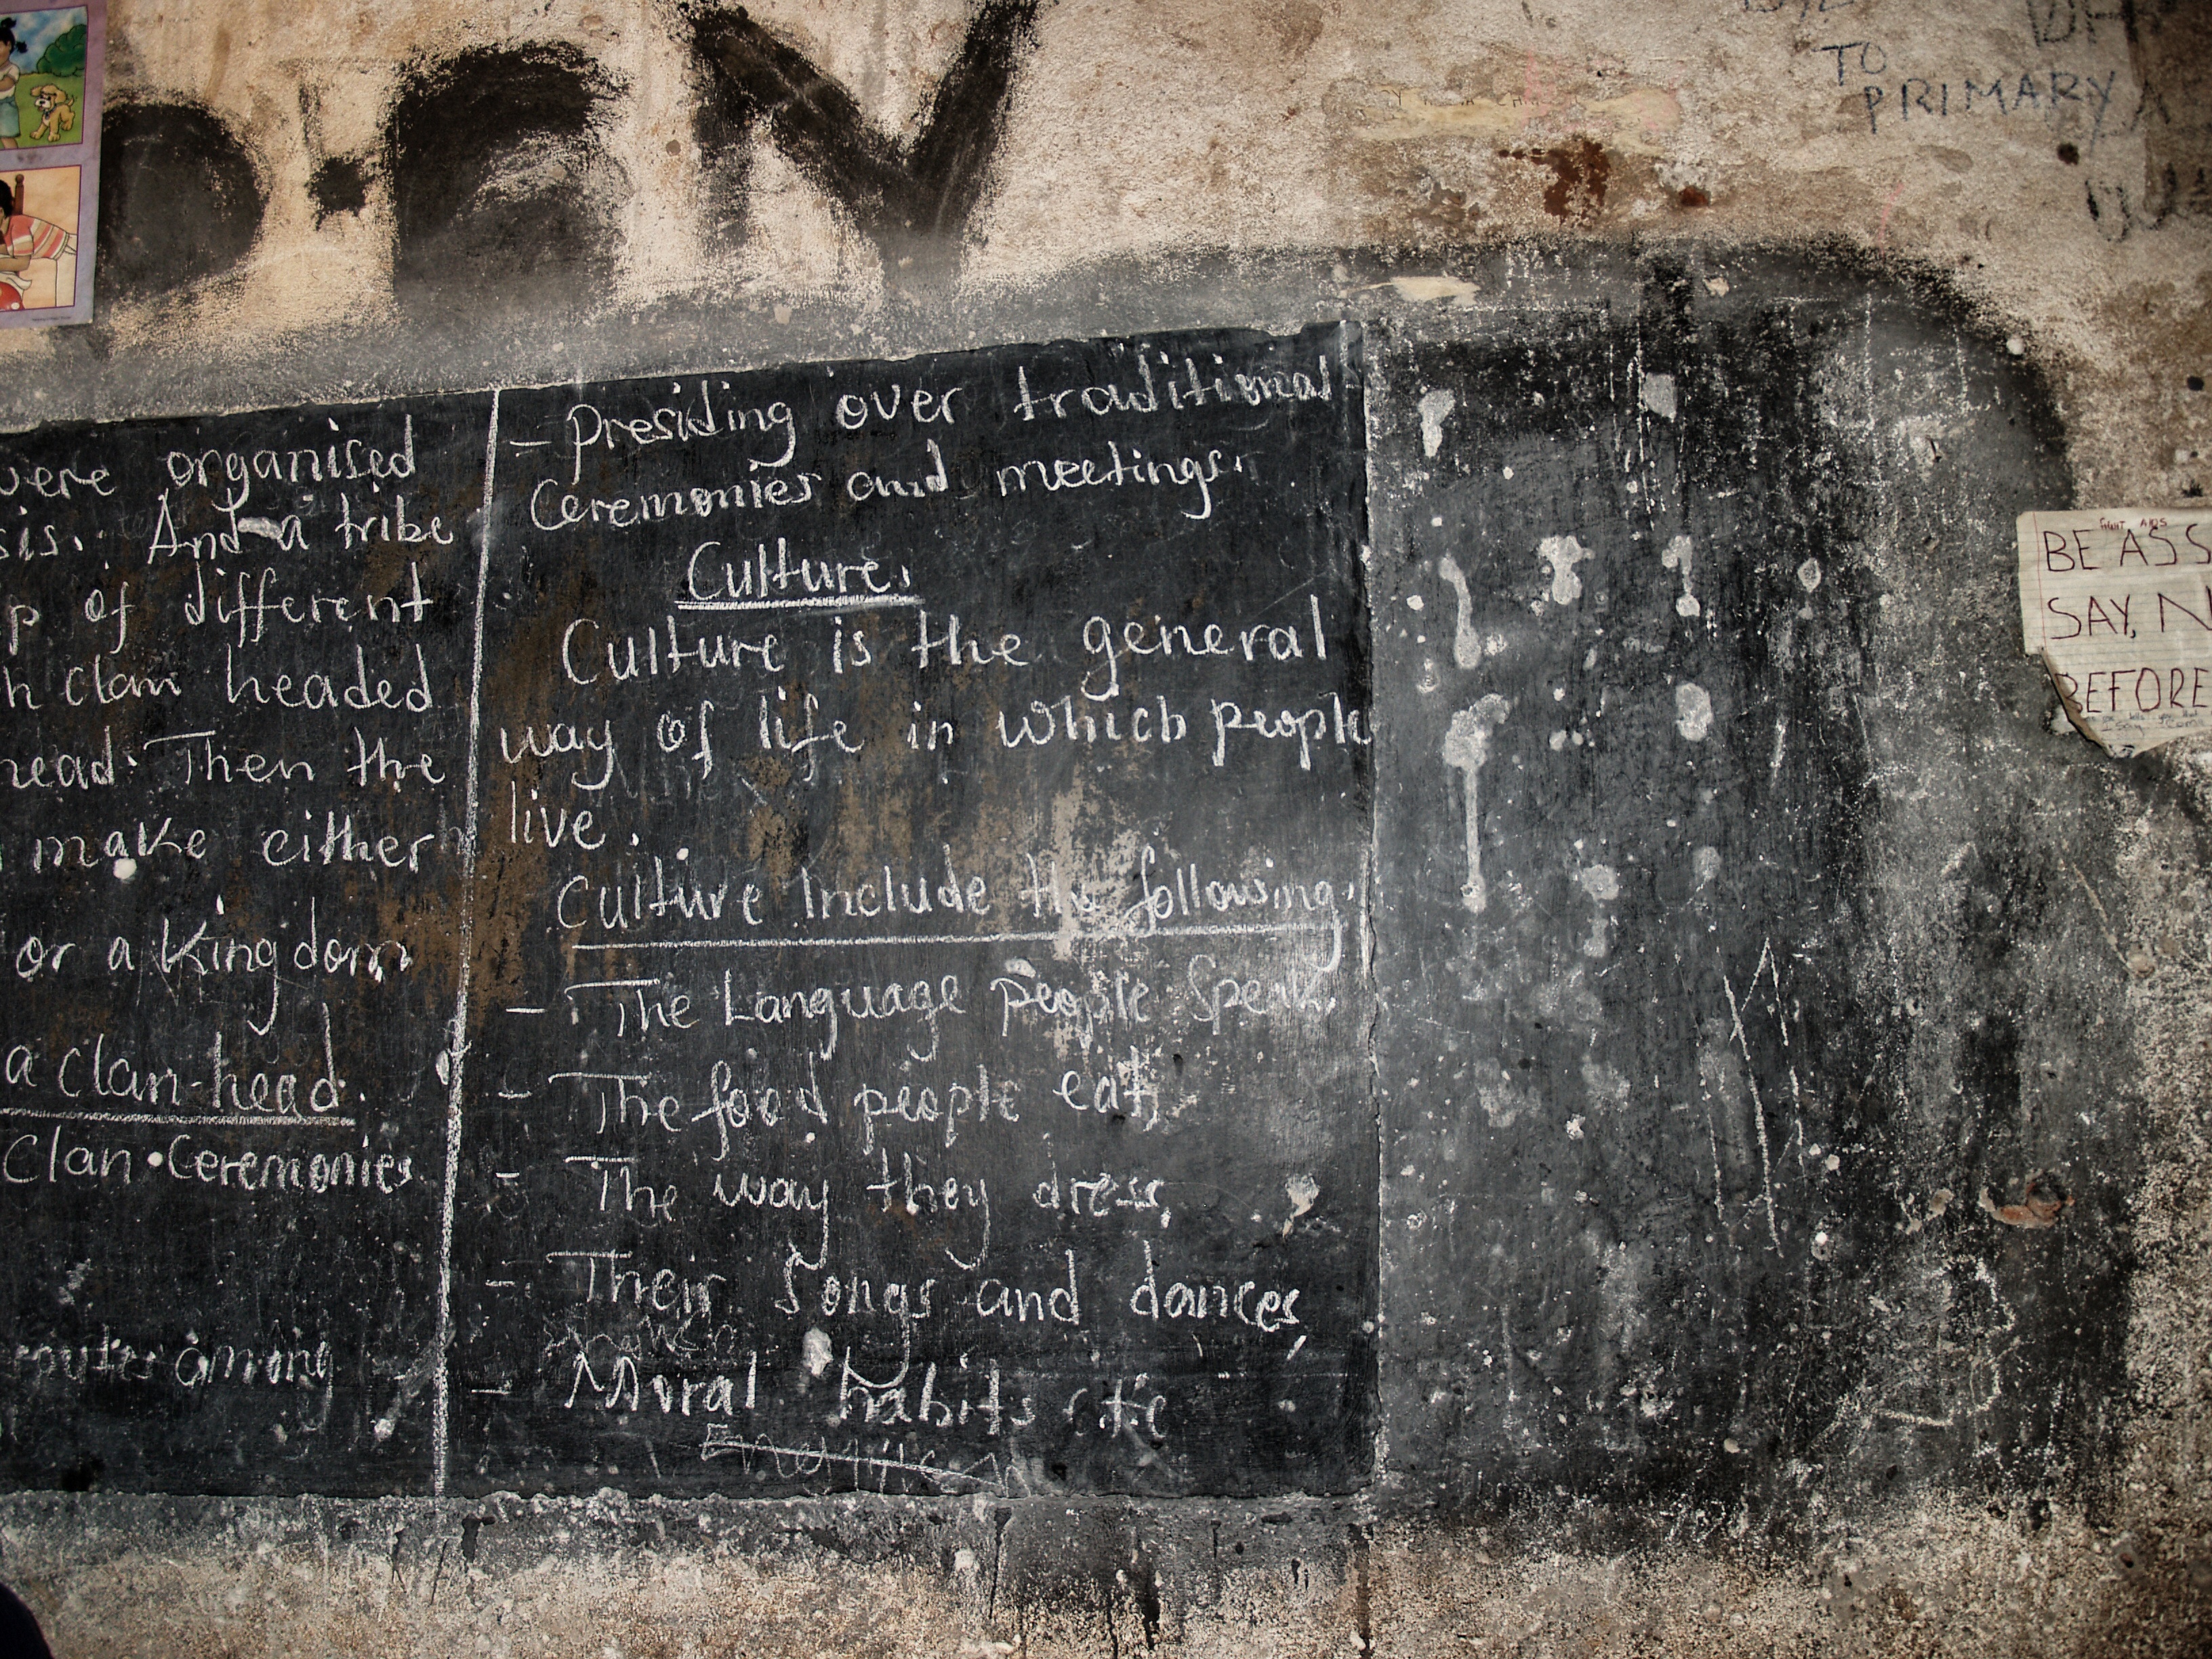 TO
PRIMARY
were organised
sis. And a tribe
p of different
h clan headed
head. Then the
make either
or a Kingdom
a clan-head.
Clan Ceremonies
among
- Presiding over traditional
Ceremonies and meetings.
Culture.
Culture is the general
way of life in which people
live.
Culture include the following.
- The Language people speak,
- The food people eat,
- The way they dress,
- Their Songs and dances,
- Moral habits etc
FIGHT AIDS
BE ASS
SAY, N
BEFORE